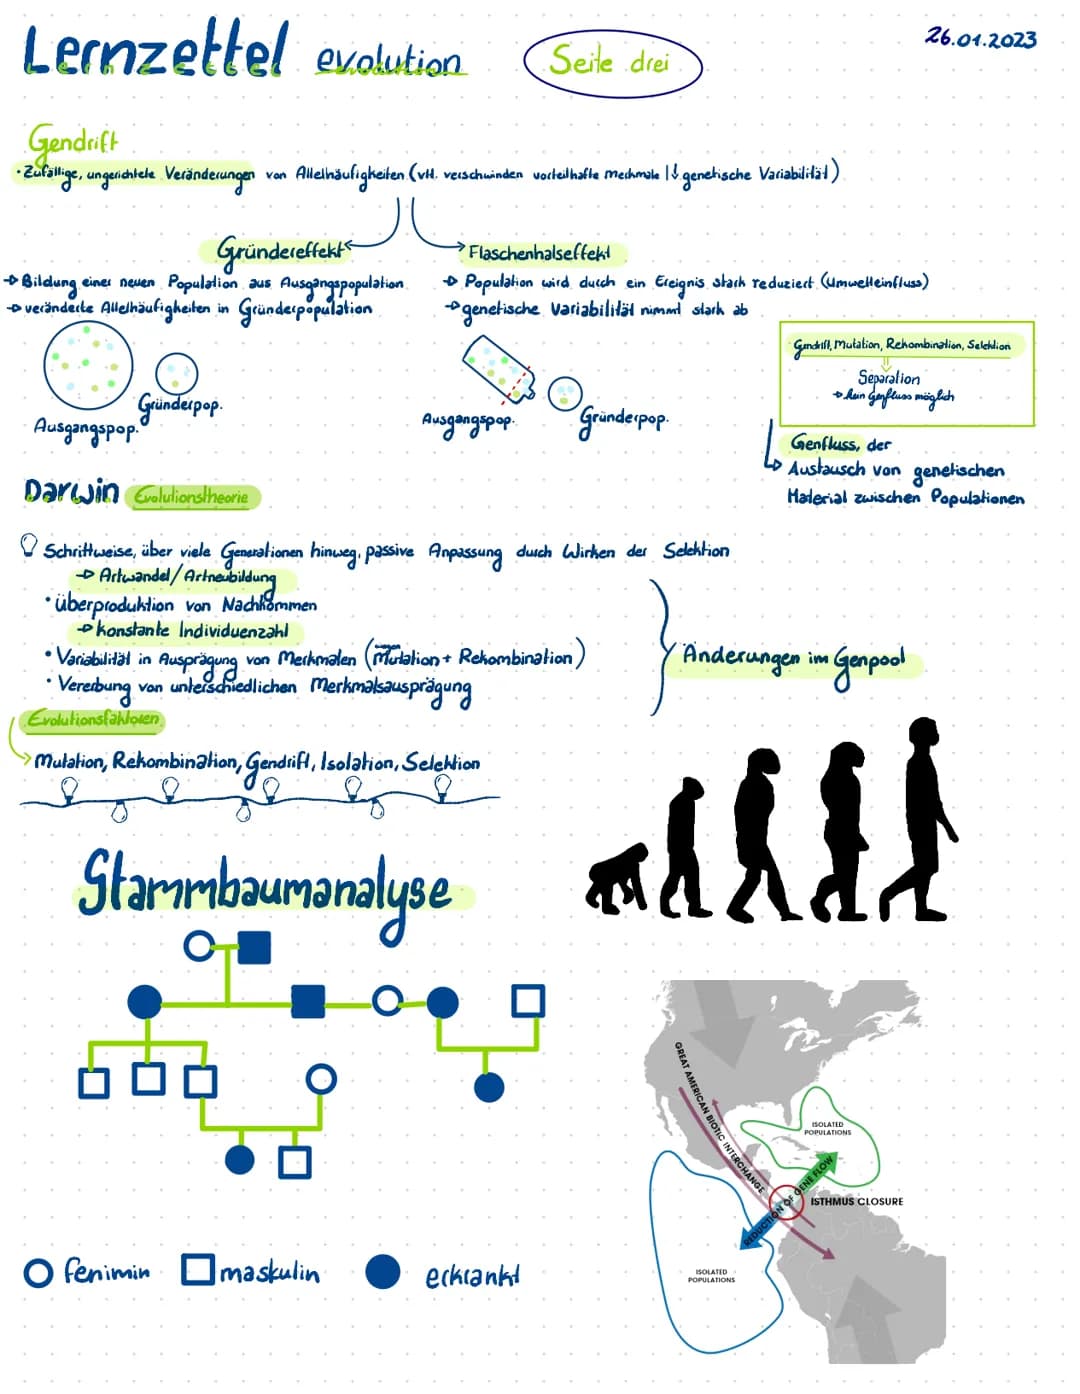 Lernzettel evolution Seite drei 26.01.2023
Gendrift
· Zufällige, ungerichtete Veränderungen von Allelhäufigkeiten (vtl. verschwinden vorteilhafte merkmale | ↓ genetische Variabilität)
Gründereffekt
→ Bildung einer neuen Population aus Ausgangspopulation
→ veränderte Allelhäufigkeiten in Gründerpopulation
Gründerpop.
Ausgangspop.
Flaschenhalseffekt
→ Population wird durch ein Ereignis stark reduziert (Umwelteinfluss)
→ genetische Variabilität nimmt stark ab
Ausgangspop. Gründerpop.
Gendrift, Mutation, Rekombination, Selektion
Separation
→ kein Genfluss möglich
Genfluss, der
→ Austausch von genetischen
Material zwischen Populationen
Darwin Evolutionstheorie
Schrittweise, über viele Generationen hinweg, passive Anpassung durch Wirken der Selektion
→ Artwandel/Artneubildung
· überproduktion von Nachkommen
→ konstante Individuenzahl
· Variabilität in Ausprägung von Merkmalen (Mutation + Rekombination)
· Vererbung von unterschiedlichen Merkmalsausprägung
Änderungen im Genpool
Evolutionsfaktoren
→ Mutation, Rekombination, Gendrift, Isolation, Selektion
Stammbaumanalyse
fenimin maskulin erkrankt
GREAT AMERICAN BIOTIC INTERCHANGE
ISOLATED
POPULATIONS
REDUCTION OF GENE FLOW
ISTHMUS CLOSURE
ISOLATED
POPULATIONS